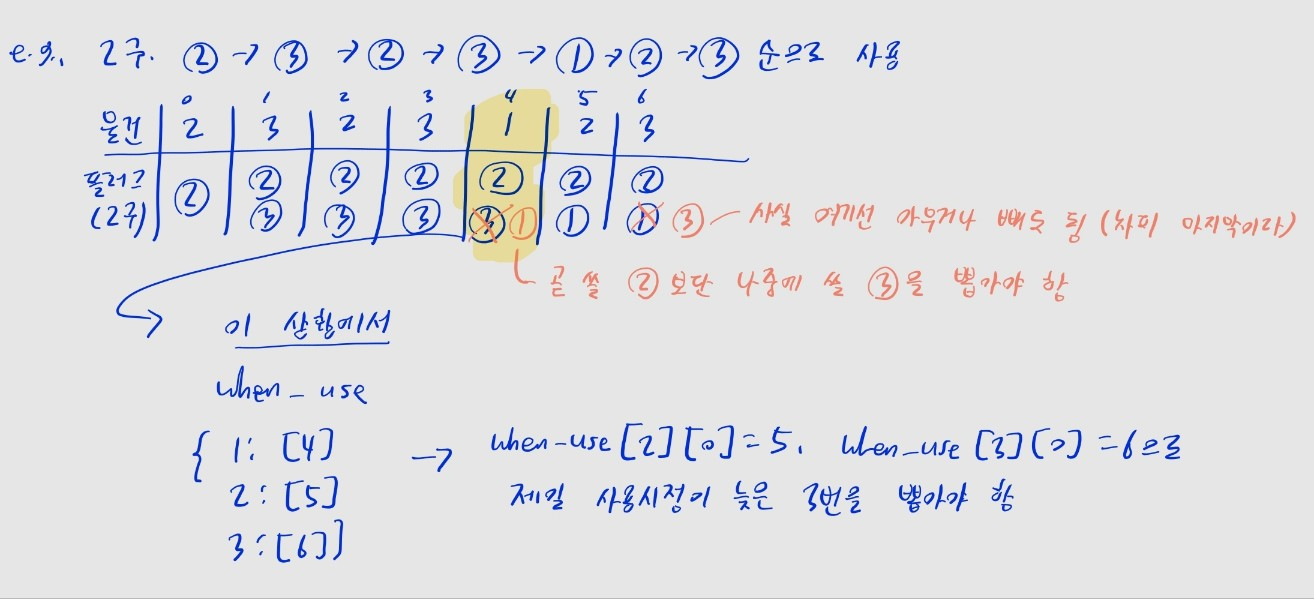 e.g., 2구. ② → ③ → ② → ③ → ① → ② → ③ 순으로 사용
0 1 2 3 4 5 6
물건 2 3 2 3 1 2 3
플러그 ② ② ② ② ② ② ②
(2구) ③ ③ ③ ③ ① ① ① ③ 사실 여기선 아무거나 빼도 됨 (차피 마지막이라)
곧 쓸 ② 보단 나중에 쓸 ③을 뽑아야 함
이 상황에서
when_use
{ 1: [4] → when_use[2][0]=5, when_use[3][0]=6으로
2: [5] 제일 사용시점이 늦은 3번을 뽑아야 함
3: [6]}